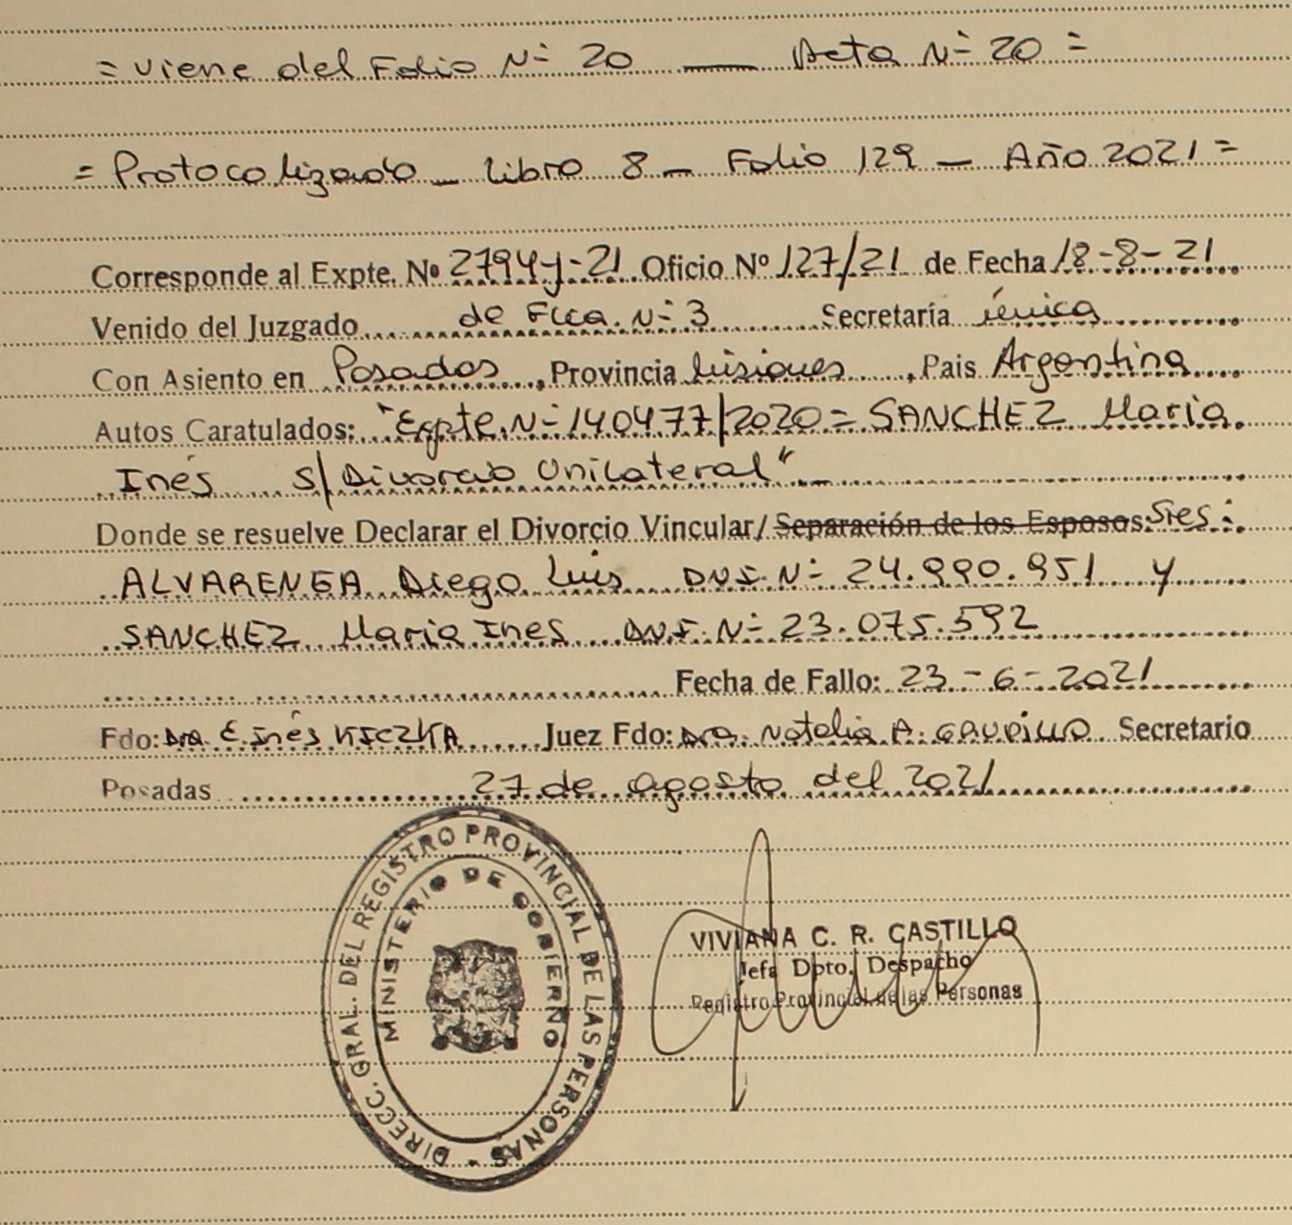 = Viene del Folio Nº 20 — Acta Nº 20 =
= Protocolizado - Libro 8 - Folio 129 - Año 2021 =
Corresponde al Expte. Nº 2794-y-21 Oficio Nº 127/21 de Fecha 18-8-21
Venido del Juzgado de Flia. Nº 3 Secretaría única
Con Asiento en Posadas, Provincia Misiones, Pais Argentina
Autos Caratulados: "Expte. Nº 140477/2020 = SANCHEZ Maria
Inés s/ Divorcio Unilateral"
Donde se resuelve Declarar el Divorcio Vincular/ Separación de los Esposos: Sres:
ALVARENGA Diego Luis D.N.I. Nº 24.990.951 y
SANCHEZ Maria Ines D.N.I. Nº 23.075.592
Fecha de Fallo: 23-6-2021
Fdo: Dra E. Inés KICZKA Juez Fdo: Dra. Natalia A. Secretario
Posadas 27 de agosto del 2021
DIRECC. GRAL. DEL REGISTRO PROVINCIAL DE LAS PERSONAS -
MINISTERIO DE GOBIERNO
VIVIANA C. R. CASTILLO
Jefa Dpto. Despacho
Registro Provincial de las Personas